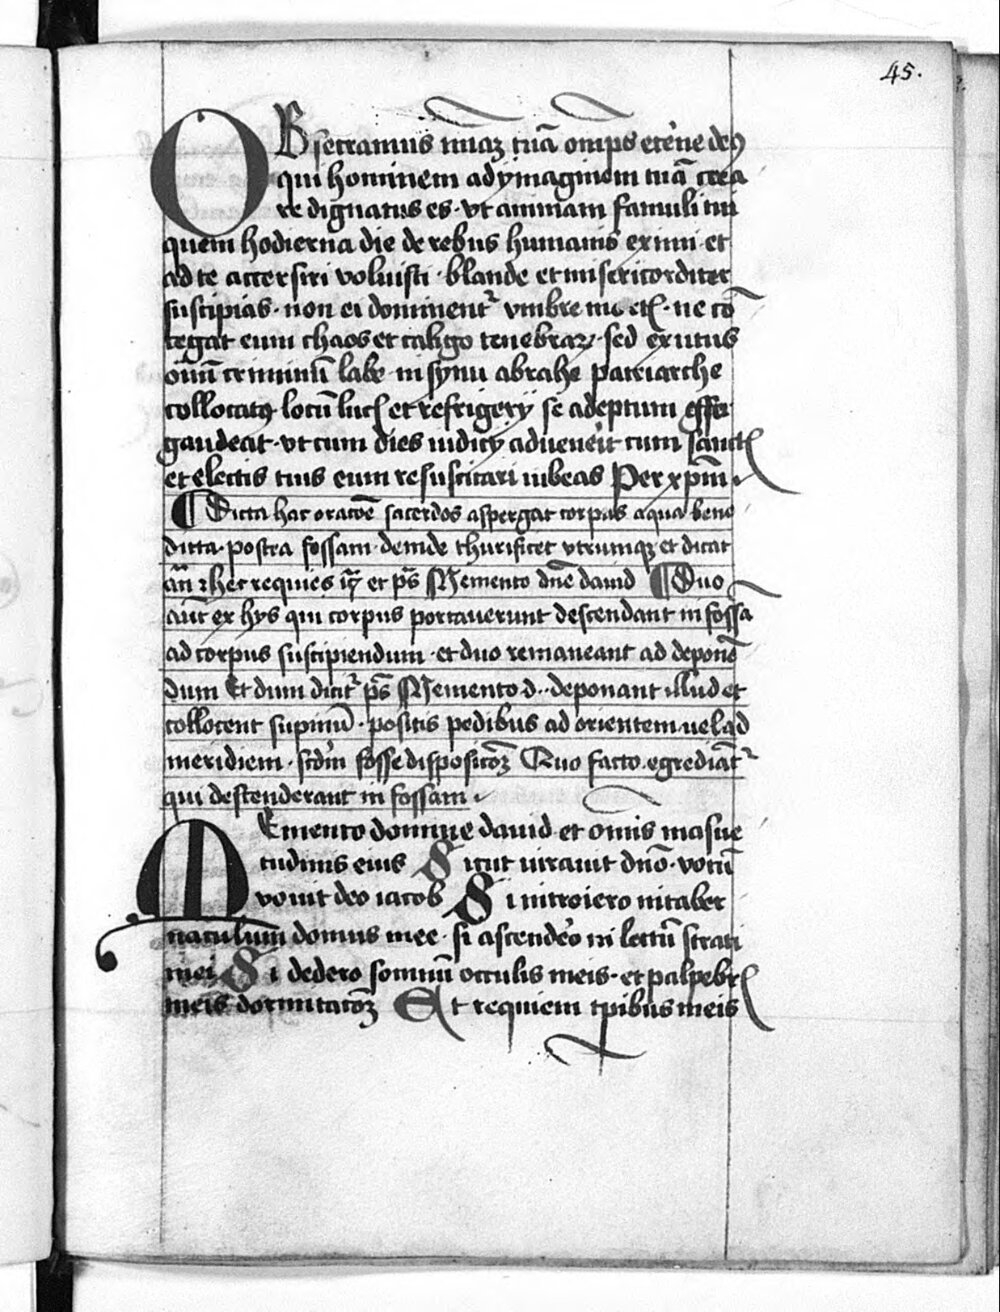 45.
OBsecramus miaꝫ tuā omps etʼne deꝰ
qui hominem ad ymaginem tuā crea
re dignatus es · vt animam famuli tui
quem hodierna die de rebus humanis eximi et
ad te accersiri voluisti · blande et misericorditer
suscipias · non ei dominentᷣ vmbre ne cō
tegat eum chaos et caligo tenebraꝝ · sed exutus
oīm criminū labe · in synu abrahe patriarche
collocatꝰ locū lucꝭ et refrigerij se adeptum esse
gaudeat · vt cum dies iudicij aduenēit cum sanctꝭ
et electis tuis eum resuscitari iubeas Per xpm̄ ·
¶ Dicta hac oratōe sacerdos aspergat corpus aqua bene
dicta · postea fossam · deinde thurificet vtrumqꝫ et dicat
an̄ hec requies et ps̄ Memento dn̄e dauid ¶ Duo
aut̄ ex hys qui corpus portauerunt descendant in fossā
ad corpus suscipiendum · et duo remaneant ad deponē
dum Et dum dicitᷣ ps̄ Memento d · deponant illud et
collocent supinū · positis pedibus ad orientem uel ad
meridiem · scdm̄ fosse dispositōꝫ Quo facto egrediātᷣ
qui descenderant in fossam ·
MEmento domine dauid · et om̄is māsue
tudinis eius Sicut iurauit dn̄o · votū
vouit deo iacob Si introiero in taber
naculum domus mee · si ascendēo in lectū strati
mei Si dedero somnū occulis meis · et palpebrꝭ
meis dormitatōꝫ Et requiem tp̄ibus meis